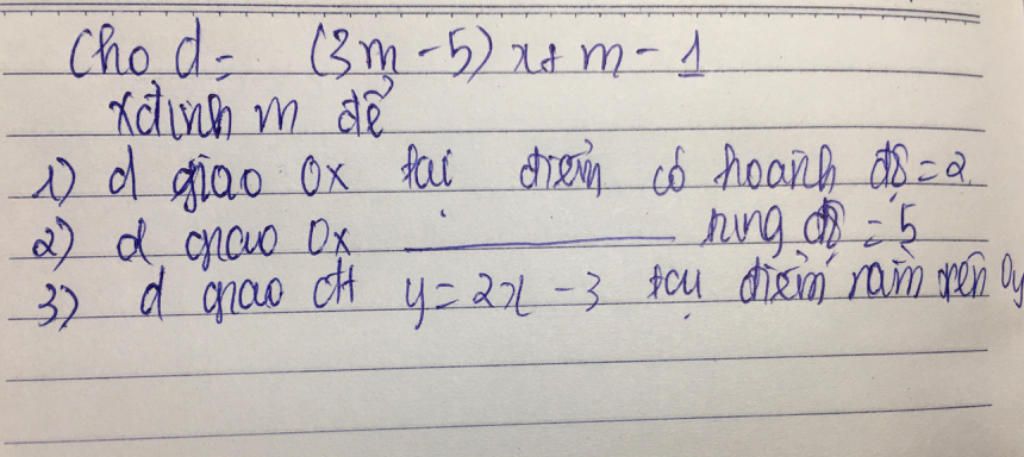 Cho d = (3m - 5) x + m - 1
xđịnh m để
1) d giao Ox tại điểm có hoành độ = 2
2) d giao Ox ________ tung độ = 5
3) d giao đt y = 2x - 3 tại điểm nằm trên Oy